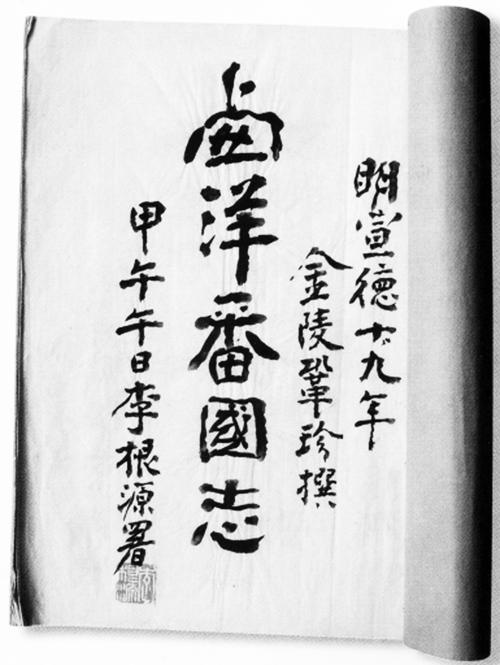 明宣德十九年
金陵鞏珍撰
卥洋番國志
甲午午日李根源署